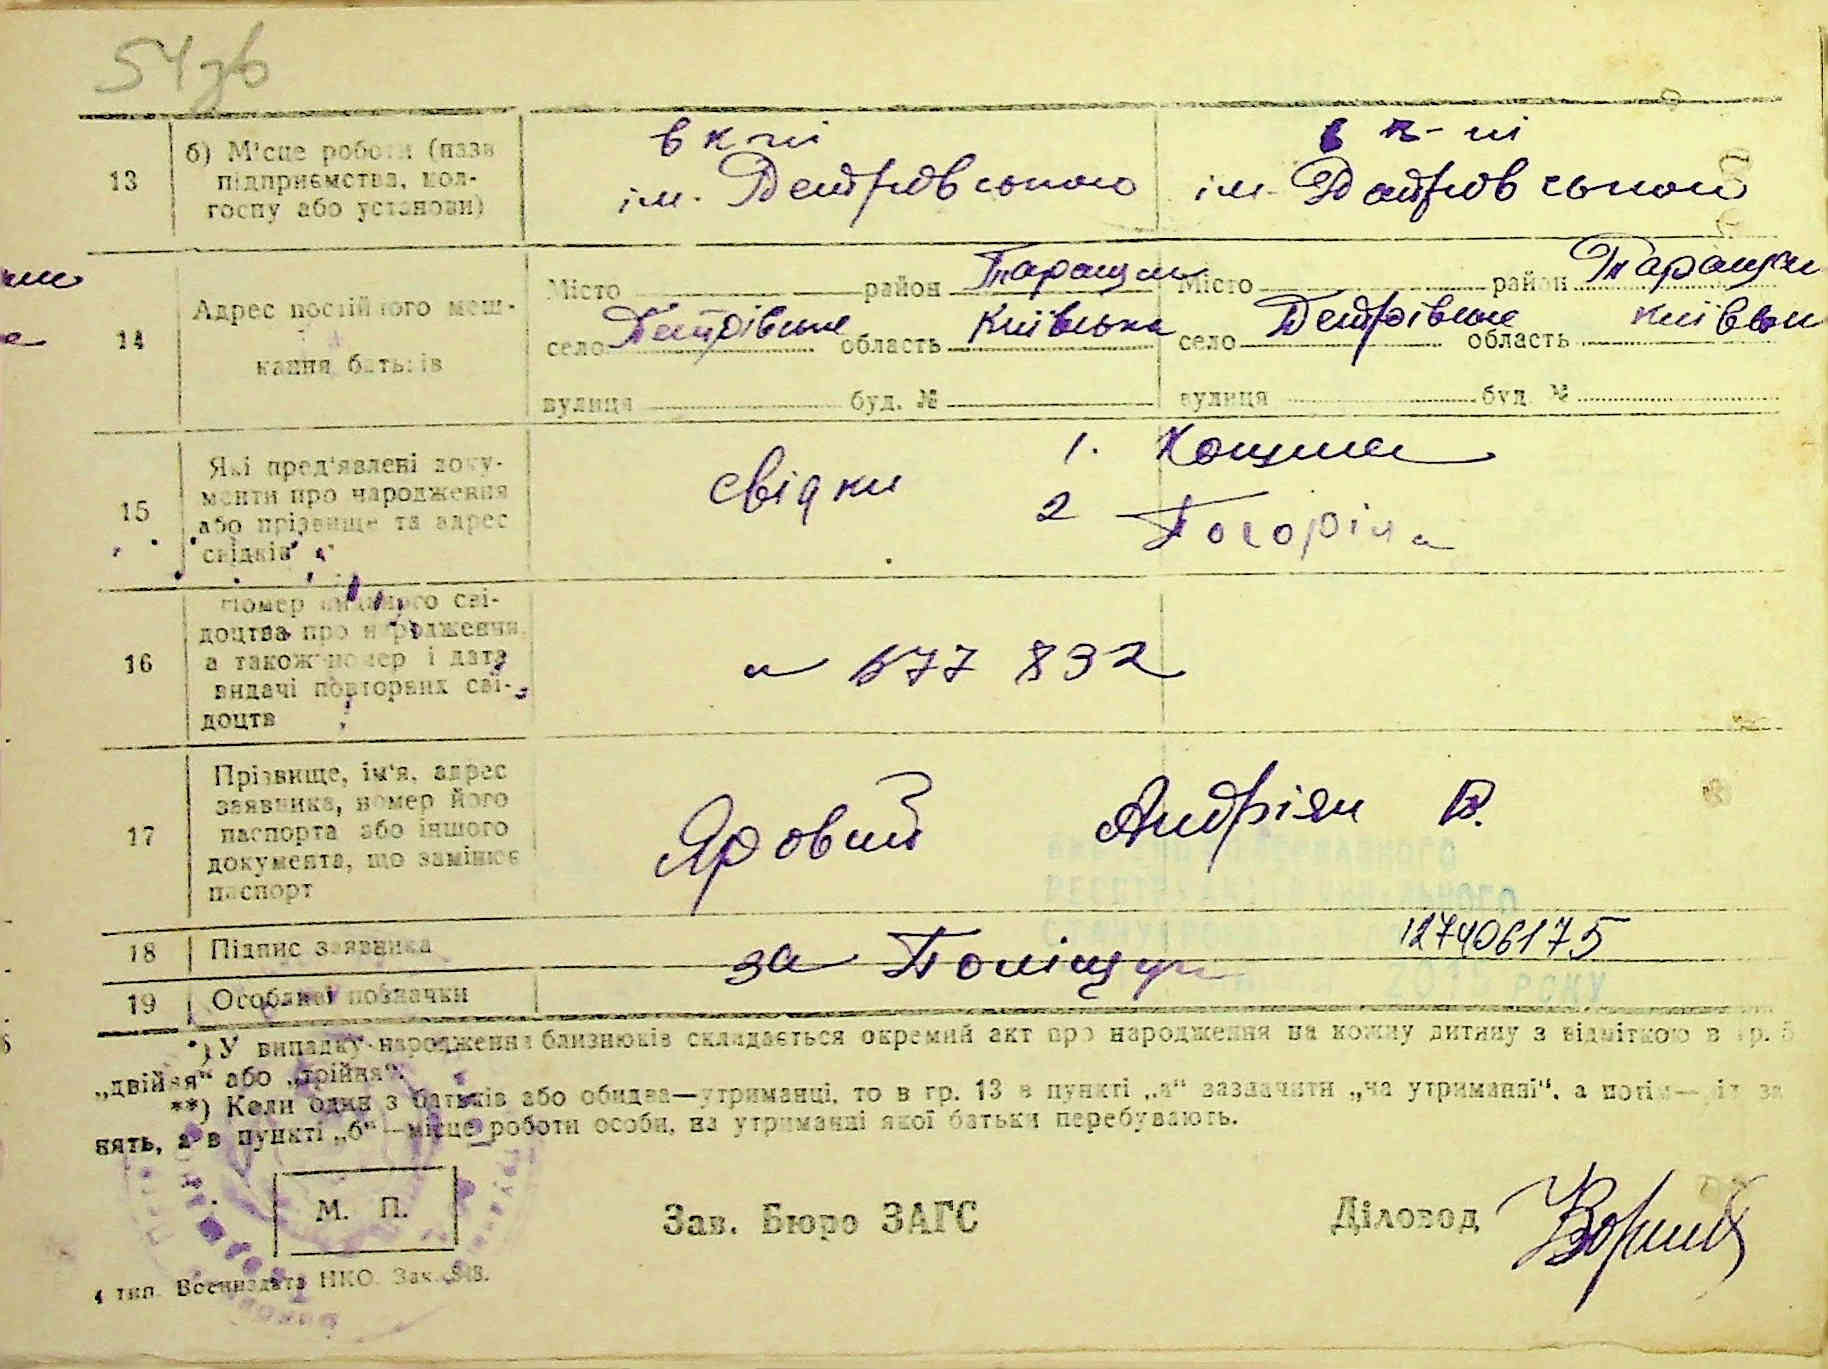 54зв
13
б) Місце роботи (назв
підприємства, кол-
госпу або установи)
в к-пі
ім. Петровського
в к-пі
ім. Петровсько
14
Адрес постійного меш-
кання батьків
Місто район Таращан
село Петрівське область Київська
вулиця буд. №
Місто район Таращан
село Петрівське область Київськ
вулиця буд №
15
Які пред'явлені доку-
менти про народження
або прізвище та адрес
свідків
свідки
1.
2 Погоріла
16
Номер виданого сві-
доцтва про народження
а також номер і дата
видачі повторних сві-
доцтв
577 832
17
Прізвище, ім'я, адрес
заявника, номер його
паспорта або іншого
документа, що замінює
паспорт
Яровий Андріян В.
18
Підпис заявника
за Поліщук
127406175
РОКУ
19
Особливі позначки
*) У випадку народження близнюків складається окремий акт про народження на кожну дитину з відміткою в гр. 5
„двійня“ або „трійня“.
**) Коли один з батьків або обидва—утриманці, то в гр. 13 в пункті „а“ зазначити „на утриманні“, а потім— за
нять, а в пункті „б“—місце роботи особи, на утриманні якої батьки перебувають.
М. П.
Зав. Бюро ЗАГС
Діловод
4 тип. Воениздата НКО. Зак. 548.